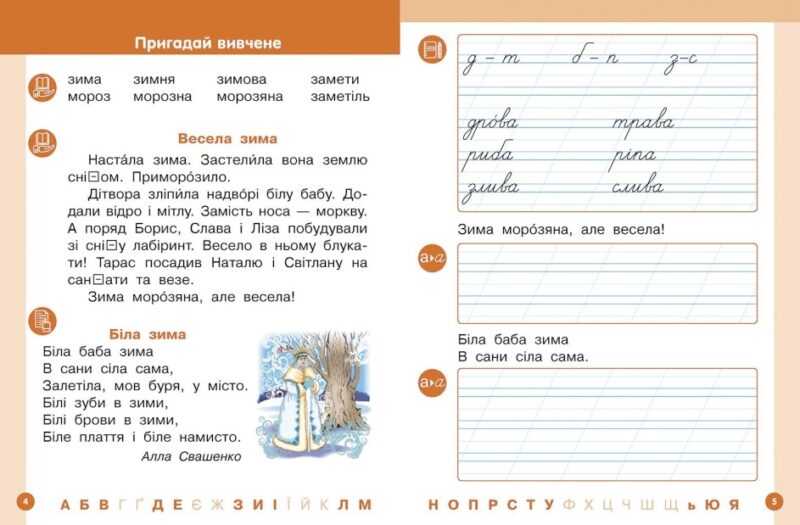 Пригадай вивчене
зима зимня зимова замети
мороз морозна морозяна заметіль
Весела зима
Наста́ла зима. Застели́ла вона землю
сні⊟ом. Приморо́зило.
Дітвора зліпи́ла надво́рі білу бабу. До-
дали відро і мітлу. Замість носа — моркву.
А поряд Борис, Слава і Ліза побудували
зі сні⊟у лабіринт. Весело в ньому блука-
ти! Тарас посадив Наталю і Світлану на
сан⊟ати та везе.
Зима моро́зяна, але весела!
Біла зима
Біла баба зима
В сани сіла сама,
Залетіла, мов буря, у місто.
Білі зуби в зими,
Білі брови в зими,
Біле плаття і біле намисто.
Алла Свашенко
4
А Б В Г Ґ Д Е Є Ж З И І Ї Й К Л М
д – т б – п з–с
дро́ва трава
риба ріпа
злива слива
Зима моро́зяна, але весела!
а▸а
Біла баба зима
В сани сіла сама.
а▸а
Н О П Р С Т У Ф Х Ц Ч Ш Щ ь Ю Я
5